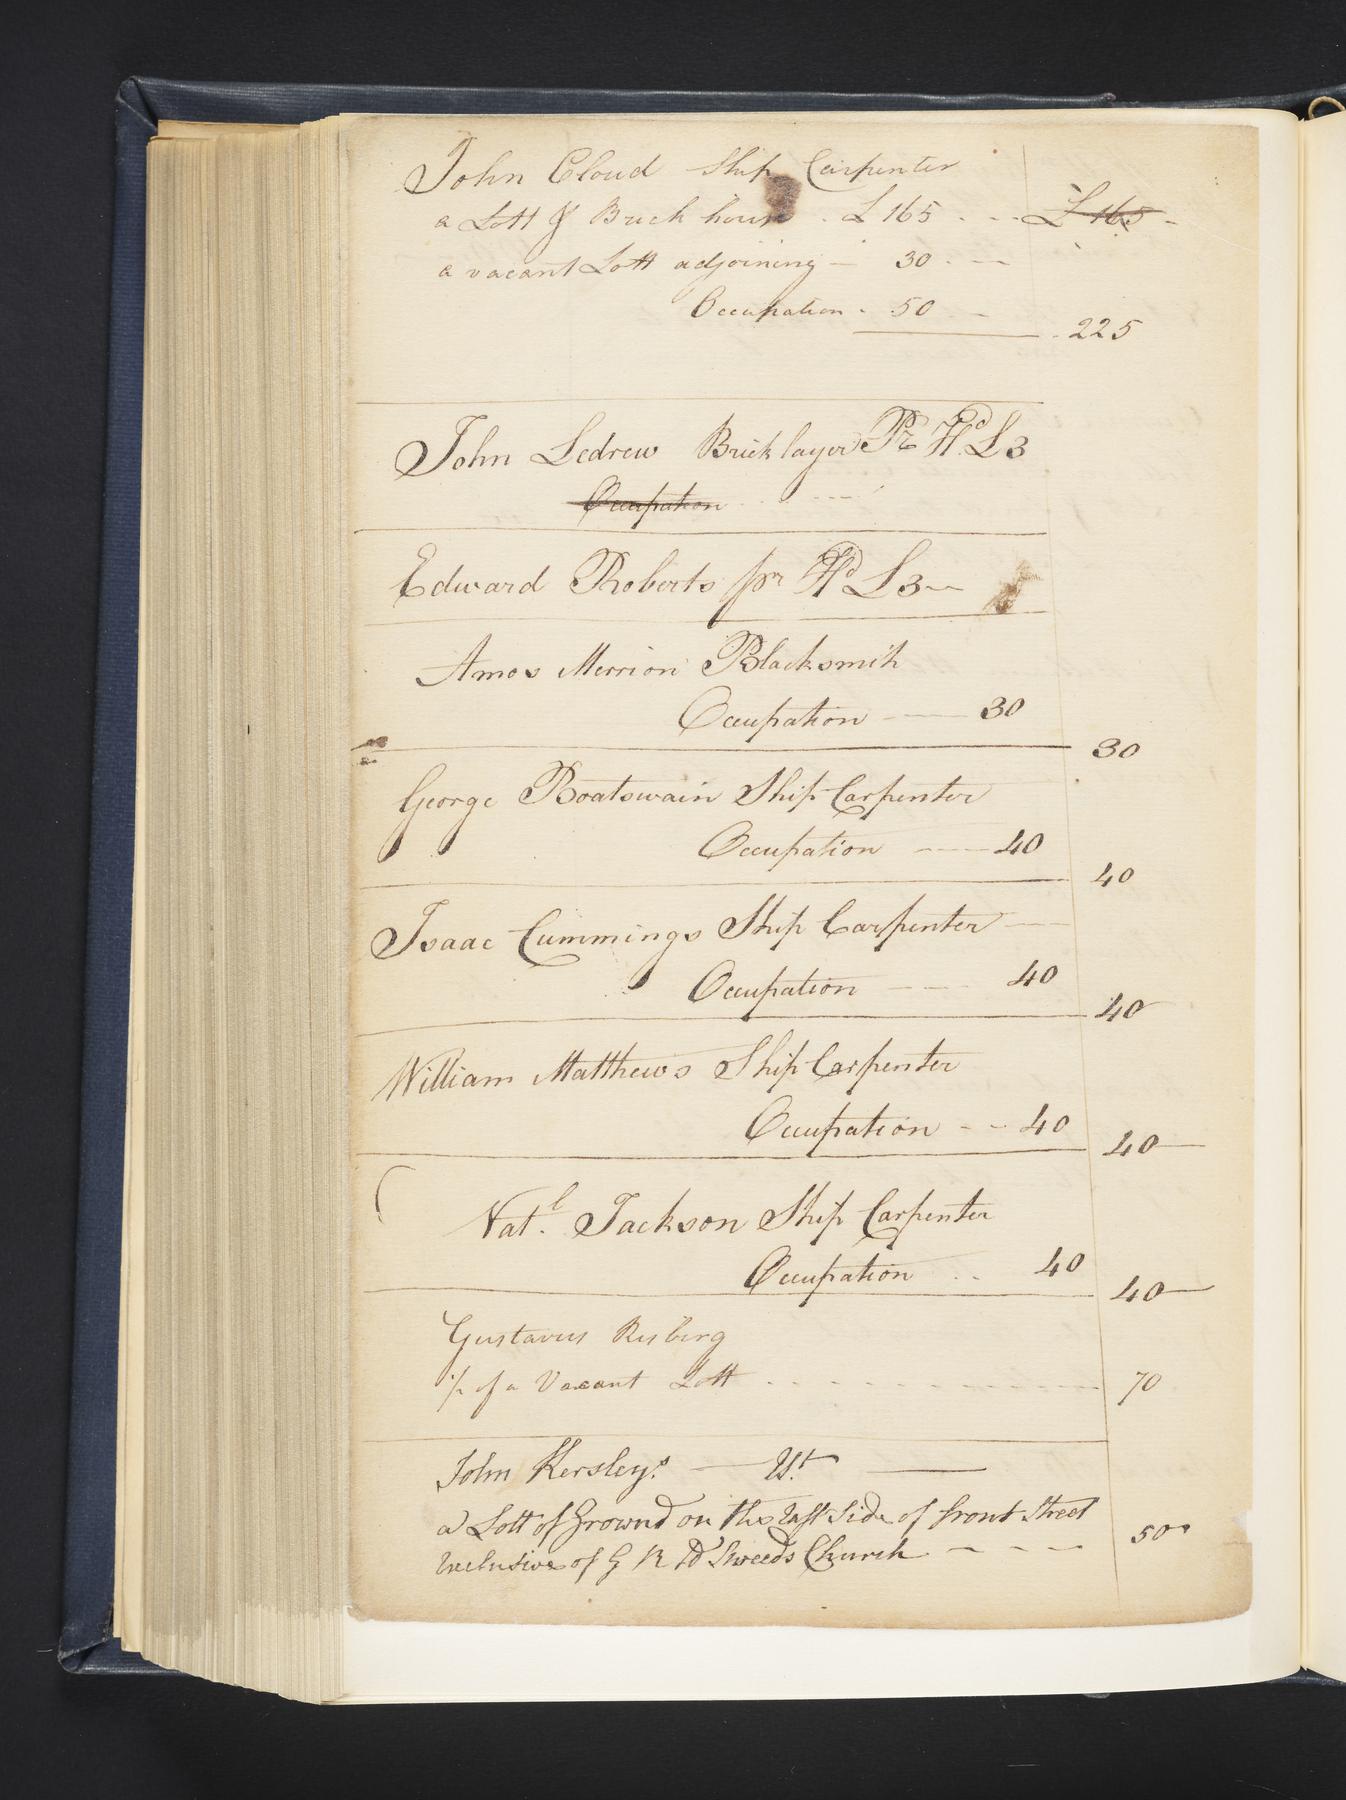 John Cloud Ship Carpenter
a Lott & Brick house . £165 . -- £165 -
a vacant Lott adjoining - 30 . --
Occupation . 50 -
225
John Ledrew Bricklayer Pr Hd £3
Occupation
Edward Roberts pr Hd £3--
Amos Merrion Blacksmith
Occupation --- 30
30
George Boatswain Ship Carpenter
Occupation --- 40
40
Isaac Cummings Ship Carpenter --
Occupation --- 40
40
William Matthews Ship Carpenter
Occupation -- 40
40 --
Natl. Jackson Ship Carpenter
Occupation .. 40
40 --
Gustavus Risberg
of a Vacant Lott - - - - - - - - - - - 70
John Kersleys. --- Et. ---
a Lott of Ground on the East Side of front Street
Inclusive of G R to Sweeds Church - - - -